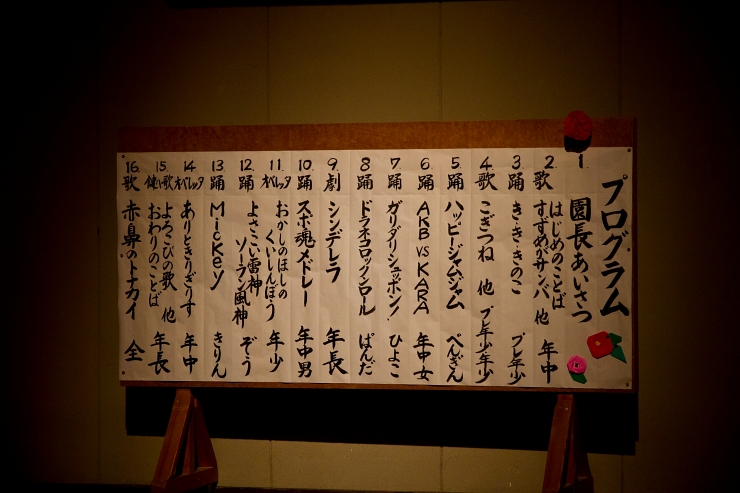 プログラム
1. 園長あいさつ
2. 歌 はじめのことば
すずめがサンバ 他 年中
3. 踊 き・き・きのこ プレ年少
4. 歌 こぎつね 他 プレ年少年少
5. 踊 ハッピージャムジャム ぺんぎん
6. 踊 AKB VS KARA 年中女
7. 踊 ガリダリシュッポン! ひよこ
8. 踊 ドラネコロックンロール ぱんだ
9. 劇 シンデレラ 年長
10. 踊 スポ魂メドレー 年中男
11. オペレッタ おかしのほしの
くいしんぼう 年少
12. 踊 よさこい雷神
ソーラン風神 ぞう
13. 踊 Mickey きりん
14. オペレッタ ありときりぎりす 年中
15. 歌 よろこびの歌 他
おわりのことば 年長
16. 歌 赤鼻のトナカイ 全